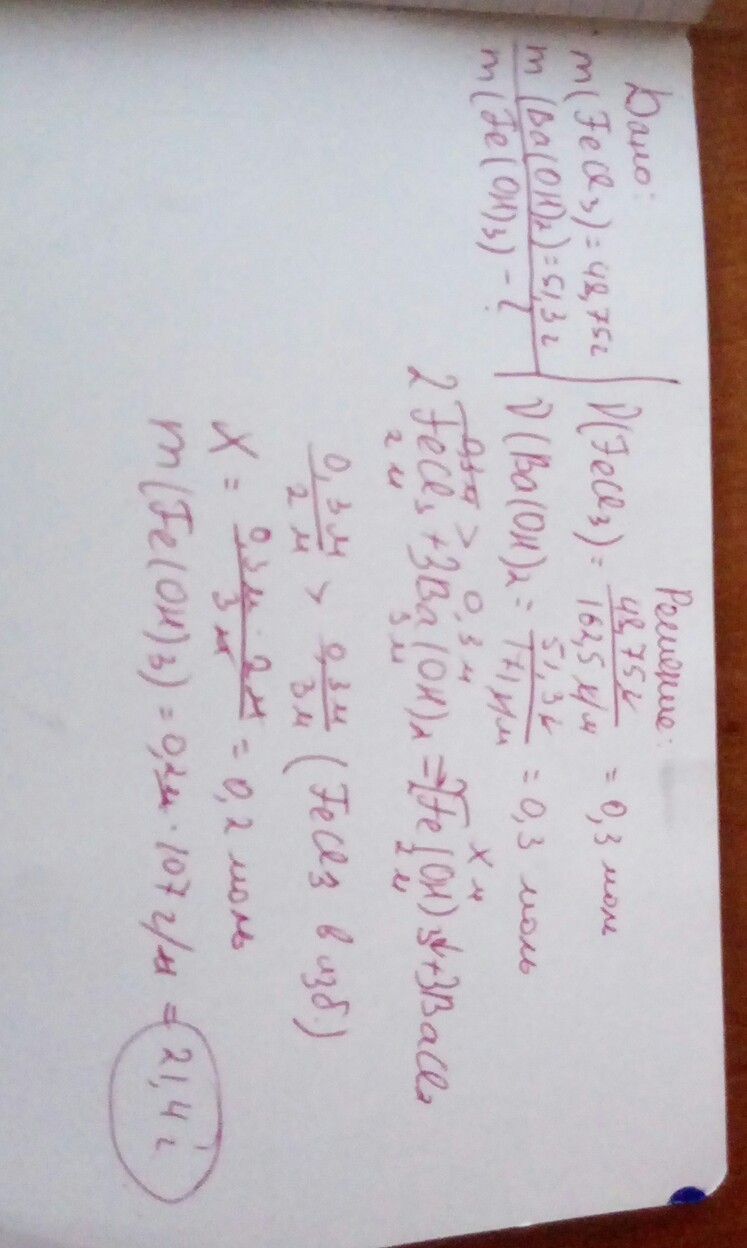 Дано:
m(FeCl3) = 48,75г
m(Ba(OH)2) = 51,3г
m(Fe(OH)3) - ?
Решение:
ν(FeCl3) = 48,75г / 162,5 г/м = 0,3 моль
ν(Ba(OH)2 = 51,3г / 171 г/м = 0,3 моль
0,3м > 0,3м xм
2FeCl3 + 3Ba(OH)2 = 2Fe(OH)3↓ + 3BaCl2
2м 3м 2м
0,3м / 2м > 0,3м / 3м (FeCl3 в изб.)
X = 0,3м · 2м / 3м = 0,2 моль
m(Fe(OH)3) = 0,2м · 107 г/м = 21,4 г